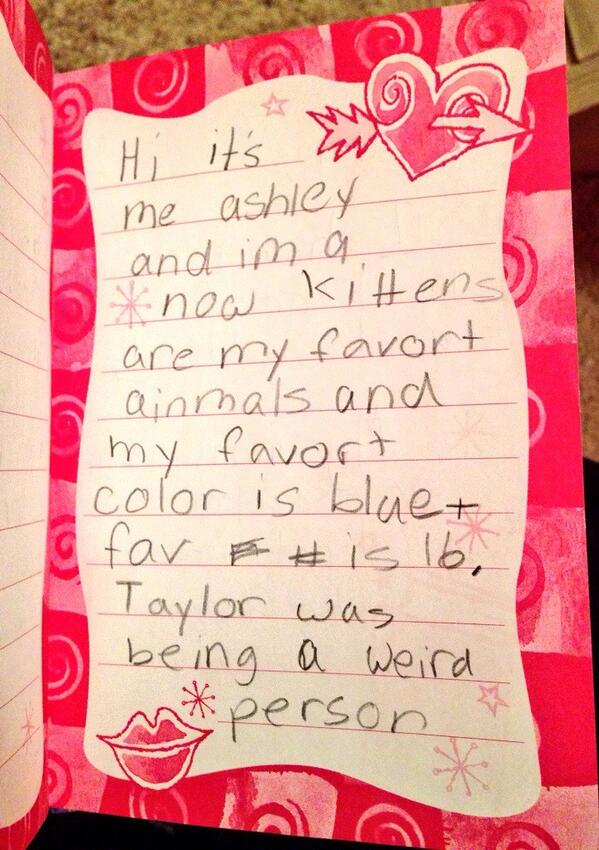 Hi it's
me ashley
and im a
now kittens
are my favort
ainmals and
my favort
color is blue +
fav # is 16.
Taylor was
being a weird
person